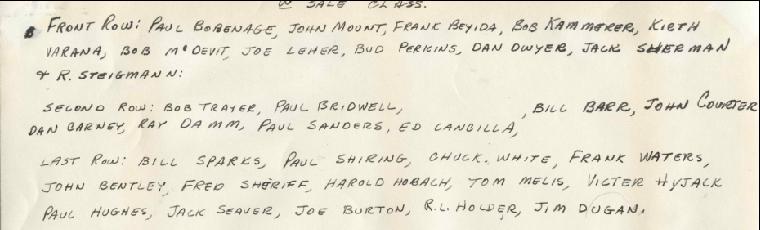 W SALE CLASS.
FRONT ROW: PAUL BOBENAGE, JOHN MOUNT, FRANK BEYIDA, BOB KAMMERER, KIETH
VARANA, BOB McDEVIT, JOE LEHER, BUD PERKINS, DAN DWYER, JACK SHERMAN
& R. STEIGMANN:
SECOND ROW: BOB TRAYER, PAUL BRIDWELL, , BILL BARR, JOHN COURTER
DAN BARNEY, RAY DAMM, PAUL SANDERS, ED CANGILLA,
LAST ROW: BILL SPARKS, PAUL SHIRING, CHUCK. WHITE, FRANK WATERS,
JOHN BENTLEY, FRED SHERIFF, HAROLD HOBACH, TOM MELIS, VICTER HYJACK
PAUL HUGHES, JACK SEAVER, JOE BURTON, R.L. HOLDER, JIM DUGAN.